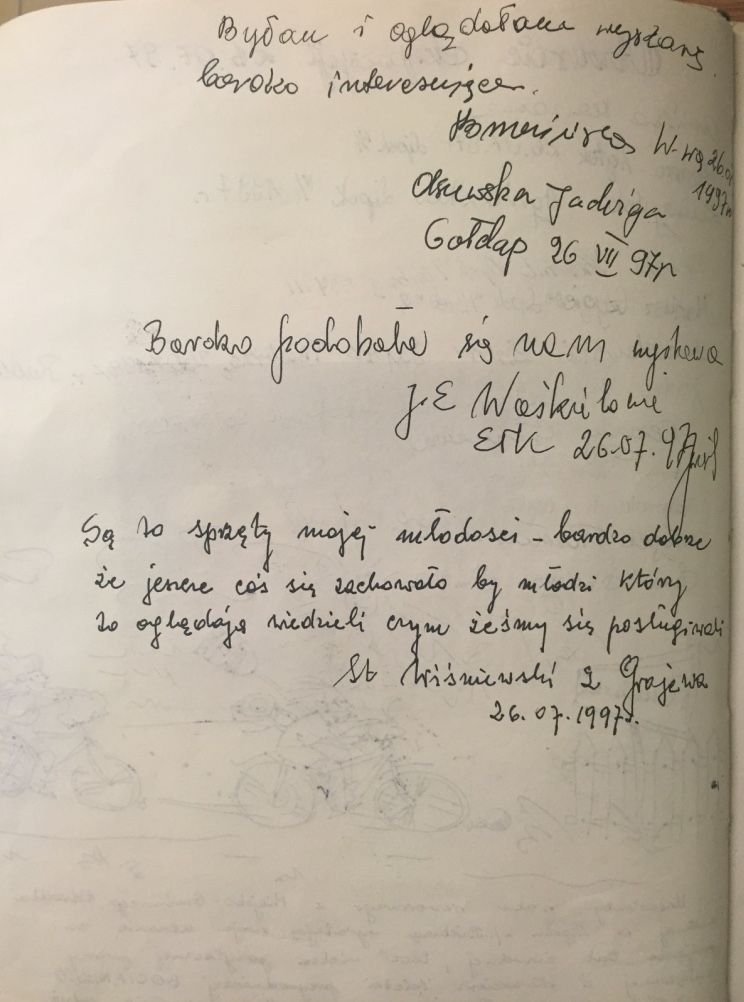 Byłam i oglądałam wystawę.
bardzo interesująca.
W-wa 26.0
1997r
Jadwiga
Gołdap 26 VII 97r
Bardzo podobała się nam wystawa
J. E Waśkilowie
Ełk 26.07.97
Są to sprzęty mojej młodości - bardzo dobrze
że jeszcze coś się zachowało by młodzi którzy
to oglądają wiedzieli czym żeśmy się posługiwali
St Wiśniewski z Grajewa
26.07.1997r.